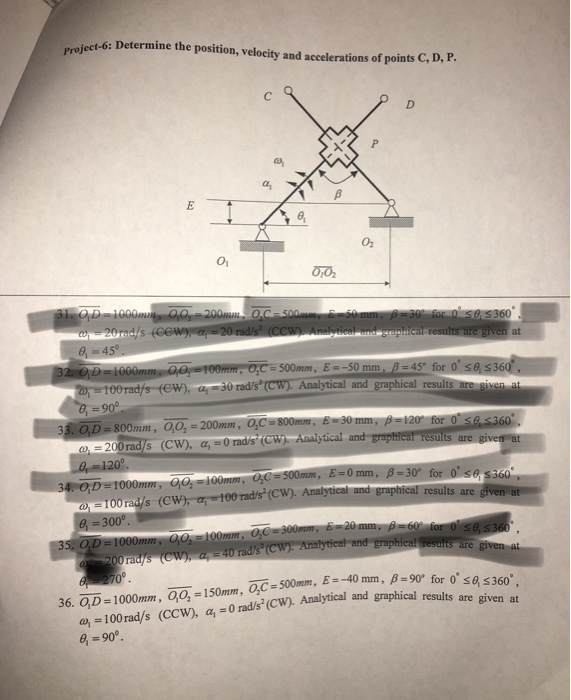 Project-6: Determine the position, velocity and accelerations of points C, D, P.
C
D
P
ω₁
α₁
β
E
θ₁
O₂
O₁
O₁O₂
31. O₁D = 1000mm, O₁O₂ = 200mm, O₂C = 500mm, E = 50 mm, β = 30° for 0° ≤ θ₁ ≤ 360°,
ω₁ = 20 rad/s (CCW), α₁ = 20 rad/s² (CCW). Analytical and graphical results are given at
θ₁ = 45°.
32. O₁D = 1000mm, O₁O₂ = 100mm, O₂C = 500mm, E = -50 mm, β = 45° for 0° ≤ θ₁ ≤ 360°,
ω₁ = 100 rad/s (CW), α₁ = 30 rad/s² (CW). Analytical and graphical results are given at
θ₁ = 90°.
33. O₁D = 800mm, O₁O₂ = 200mm, O₂C = 800mm, E = 30 mm, β = 120° for 0° ≤ θ₁ ≤ 360°,
ω₁ = 200 rad/s (CW), α₁ = 0 rad/s² (CW). Analytical and graphical results are given at
θ₁ = 120°.
34. O₁D = 1000mm, O₁O₂ = 100mm, O₂C = 500mm, E = 0 mm, β = 30° for 0° ≤ θ₁ ≤ 360°,
ω₁ = 100 rad/s (CW), α₁ = 100 rad/s² (CW). Analytical and graphical results are given at
θ₁ = 300°.
35. O₁D = 1000mm, O₁O₂ = 100mm, O₂C = 300mm, E = 20 mm, β = 60° for 0° ≤ θ₁ ≤ 360°,
200 rad/s (CW), α₁ = 40 rad/s² (CW). Analytical and graphical results are given at
= 270°.
36. O₁D = 1000mm, O₁O₂ = 150mm, O₂C = 500mm, E = -40 mm, β = 90° for 0° ≤ θ₁ ≤ 360°,
ω₁ = 100 rad/s (CCW), α₁ = 0 rad/s² (CW). Analytical and graphical results are given at
θ₁ = 90°.